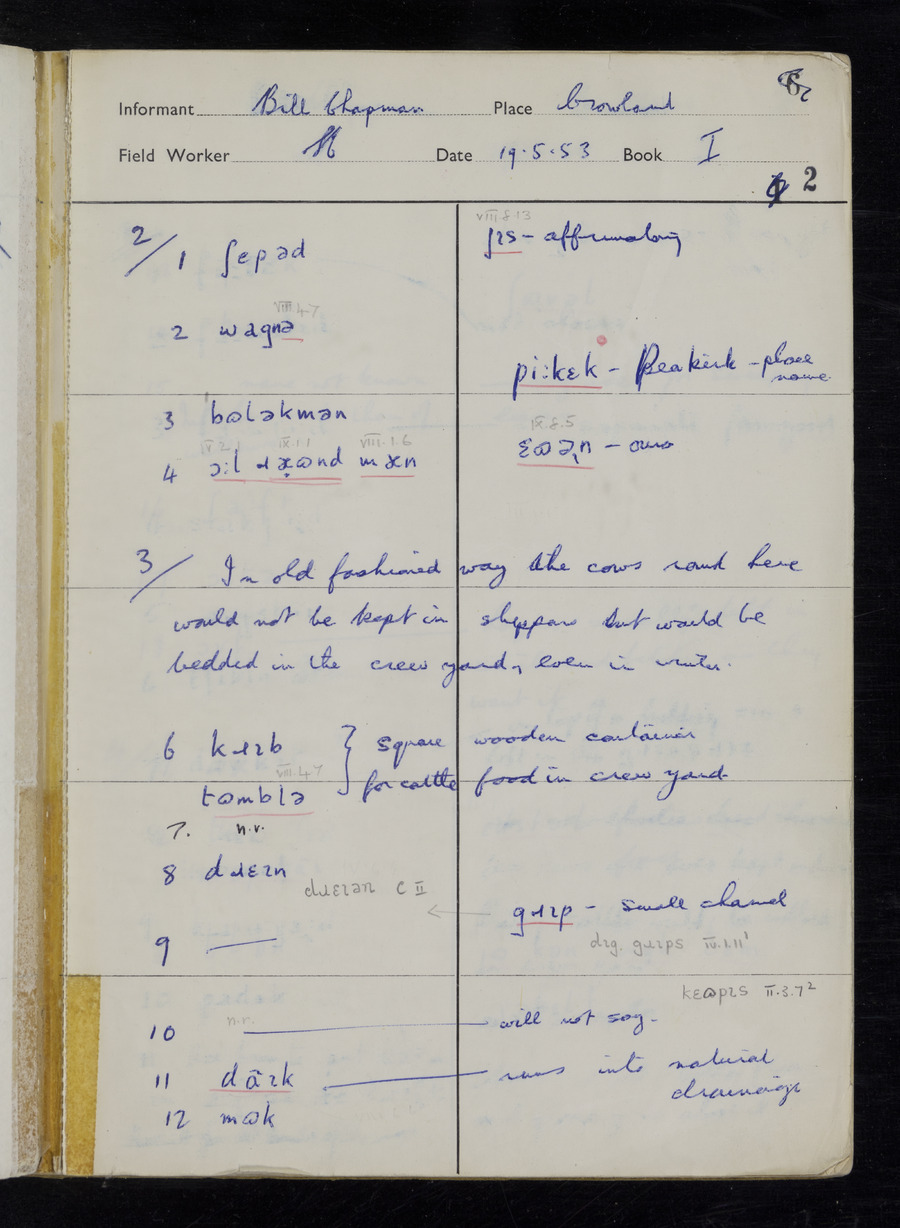 Informant Bill Chapman Place Crowland
Field Worker Date 19.5.53 Book I
2
VIII.8.13
2/ 1 ʃepəd
jɪs - affirmatory
VIII.4.7
2 wagnə
pi:kɛk - Peakirk - place name
3 bʊləkmən
IV.2.1 IX.1.1 VIII.1.6
IX.8.5
4 ɔ:l ɹæ̣ʊnd mæn
ɛʊə̣n - own
3/ In old fashioned way the cows round here
would not be kept in sheppons but would be
bedded in the crew yard, even in winter.
6 kɹɪb } square wooden container
VIII.4.7
tʊmblə for cattle food in crew yard
7. n.r.
8 dɹɛɪn
dɹɛɪən C II
gɹɪp - small channel
9 —
dɪg. gɹɪps IV.1.11'
kɛʊpɪs II.3.7²
n.r.
10 — will not say.
11 dãɪk — runs into natural
drainage
12 mʊk